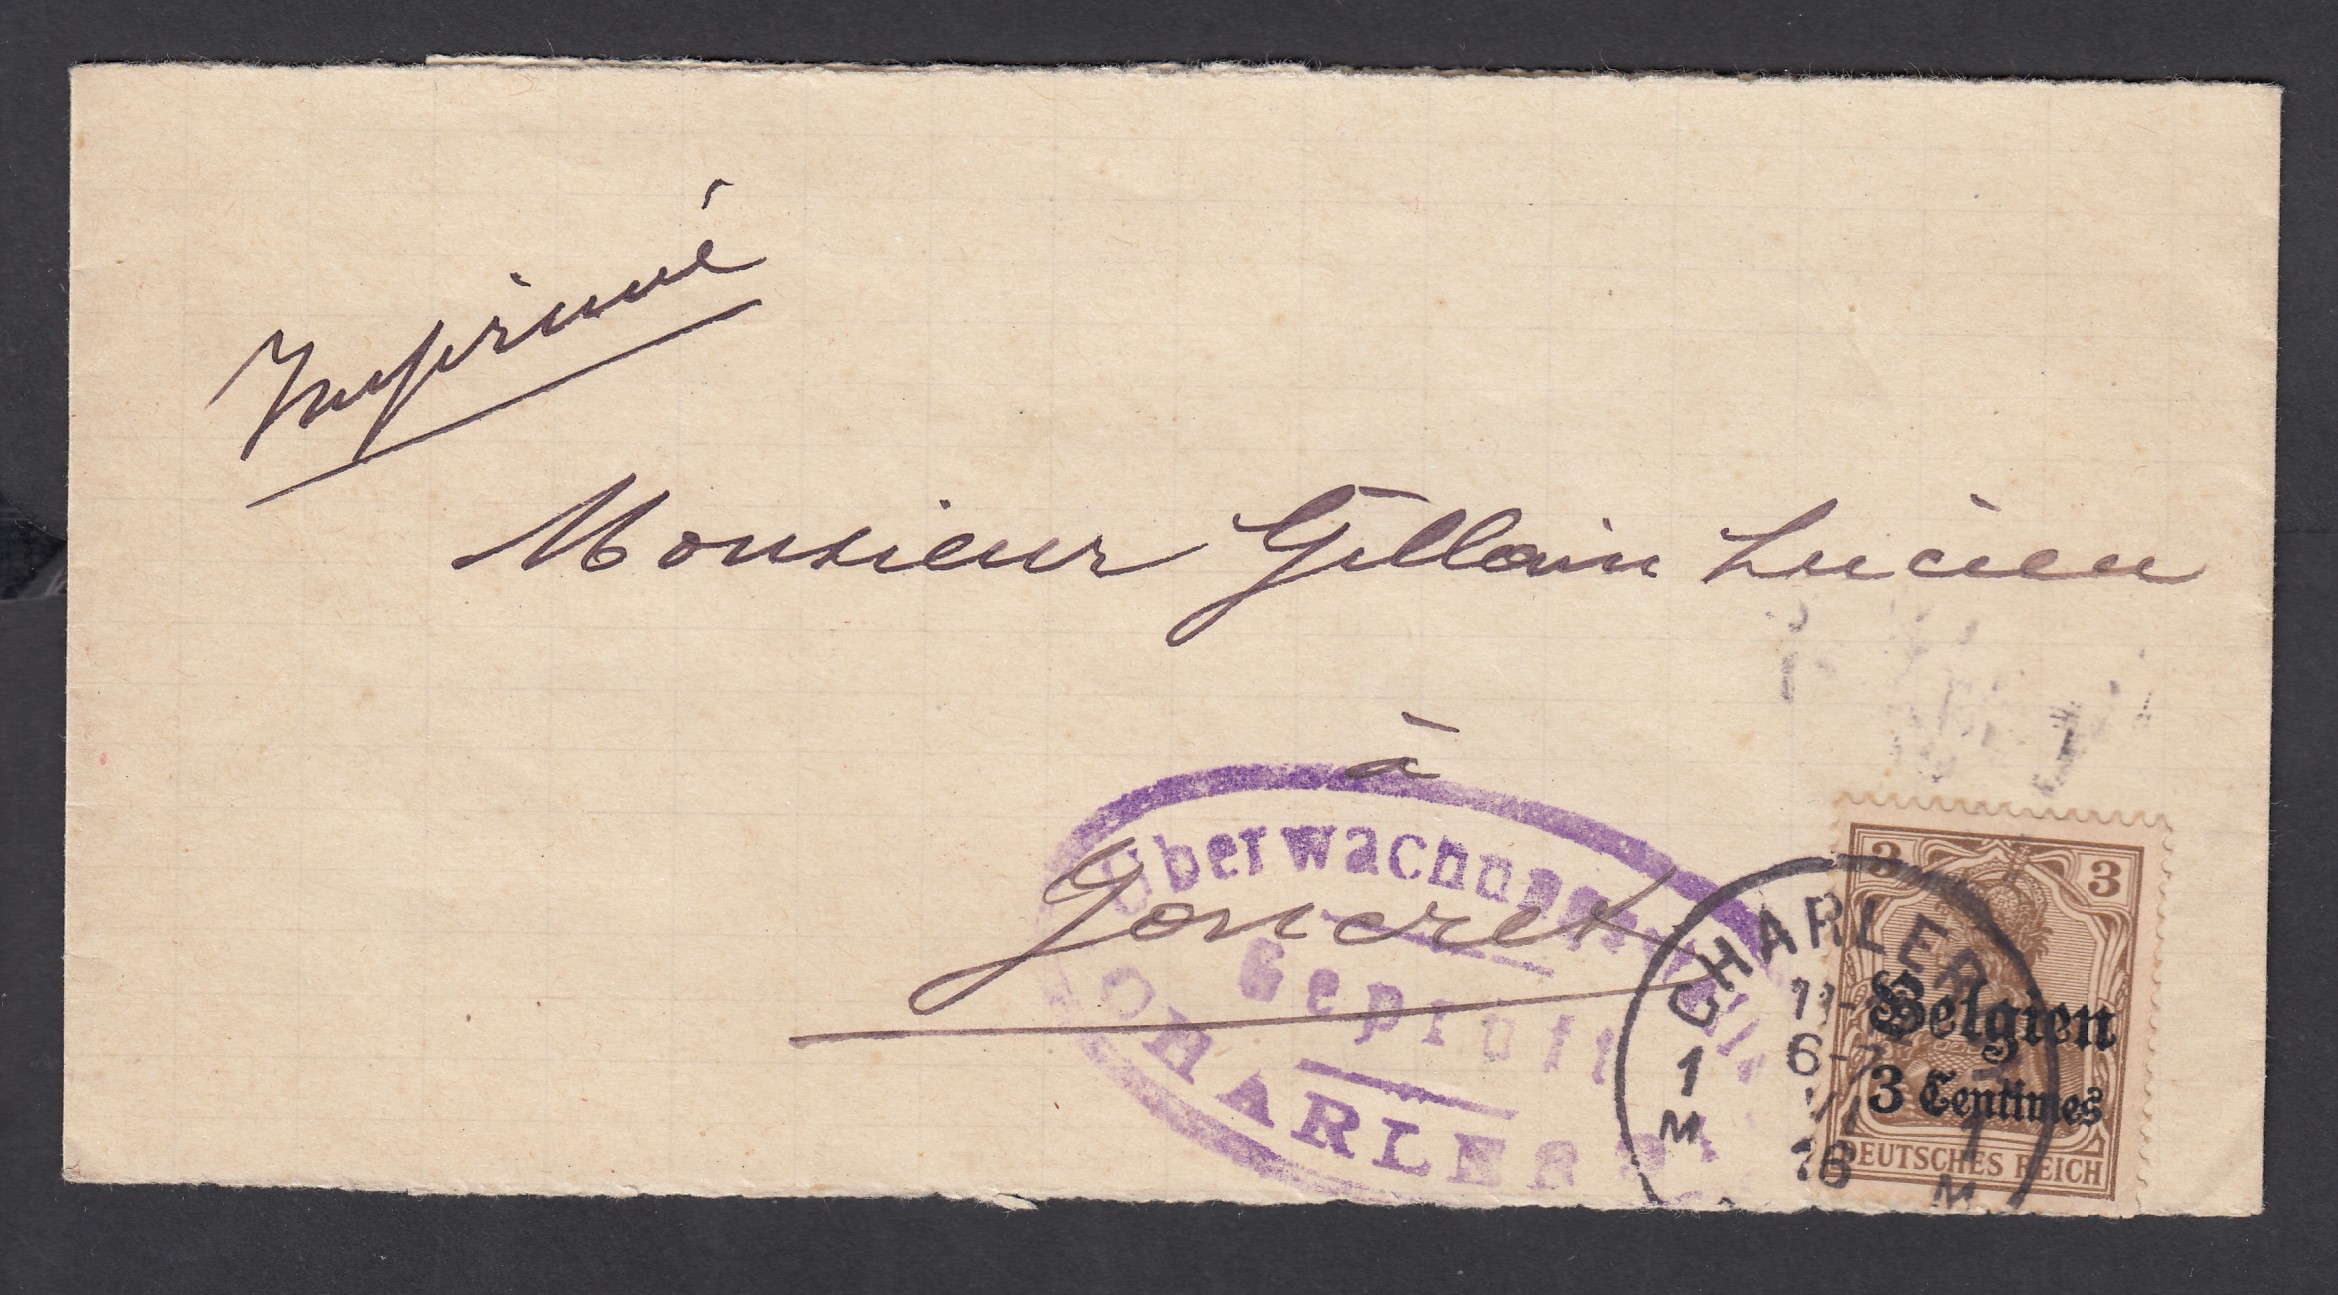 Imprimé
Monsieur Gillain Lucien
à
Goncret
Überwachungs
Geprüft
CHARLER
CHARLER
11-
6-7
VI
16
1
M
1
M
3 3
Belgien
3 Centimes
DEUTSCHES REICH